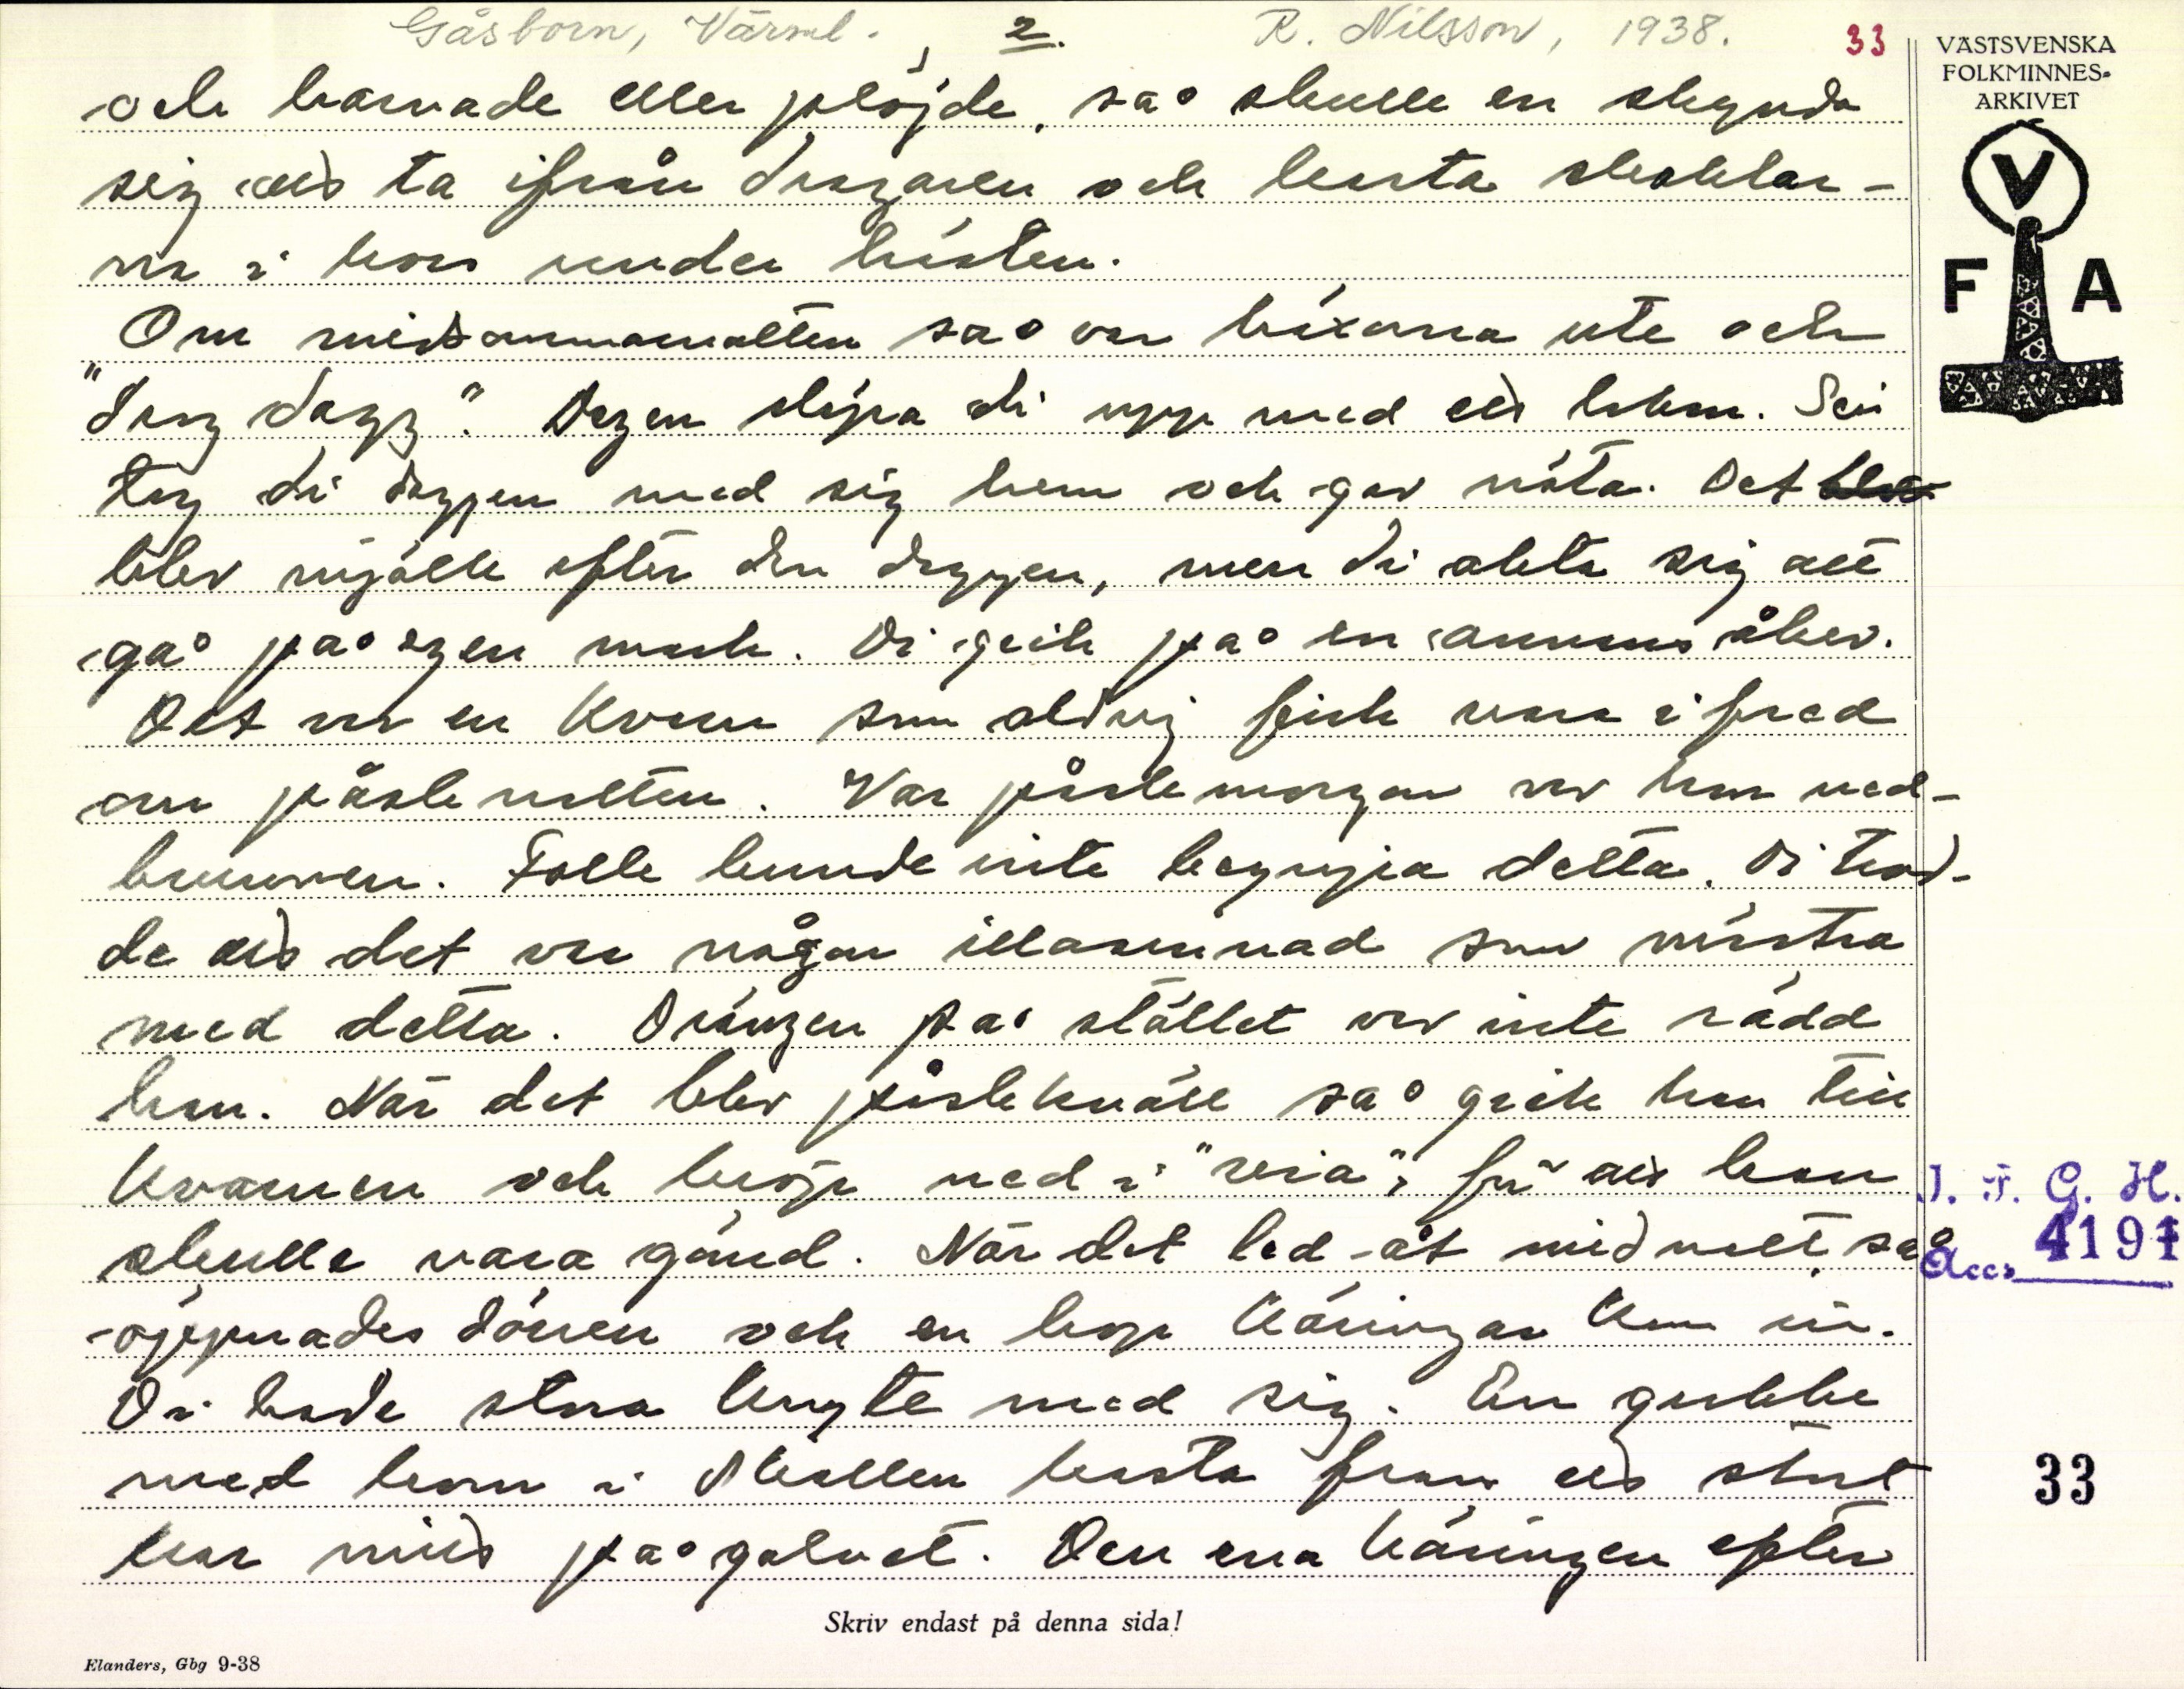 Gåsborn, Värml. 2. R. Nilsson, 1938. 33
VÄSTSVENSKA
FOLKMINNES-
ARKIVET
V
F A
och harvade eller plöjde, så skulle en skynda
sig att ta ifrån dragaren och kasta skaklar-
na i kors under hästen.
Om midsommarnatten så var häxorna ute och
"drog dagg". Dagen släpa di upp med ett lakan. Sen
tog di daggen med sig hem och gav nöta. Det
blev mjölk efter den daggen, men di akta sig att
gå på egen mark. Di gick på en annans åker.
Det var en kvarn som aldrig fick vara i fred
om påsknatten. Var påskmorgon var hon ned-
brunnen. Folk kunde inte begripa detta. Di trod-
de att det var någon illasinnad som mästra
med detta. Drängen på stället var inte rädd
han. När det blev påskkväll så gick han till
kvarnen och kröp ned i "reia", för att han
skulle vara gömd. När det led åt midnatt, så
öppnades dörren och en hop käringar kom in.
Di hade stora knyte med sig. En gubbe
med horn i skallen kasta fram ett stort
kar mitt på golvet. Den ena käringen efter
I. F. G. H.
Acc. 4191
33
Skriv endast på denna sida!
Elanders, Gbg 9-38